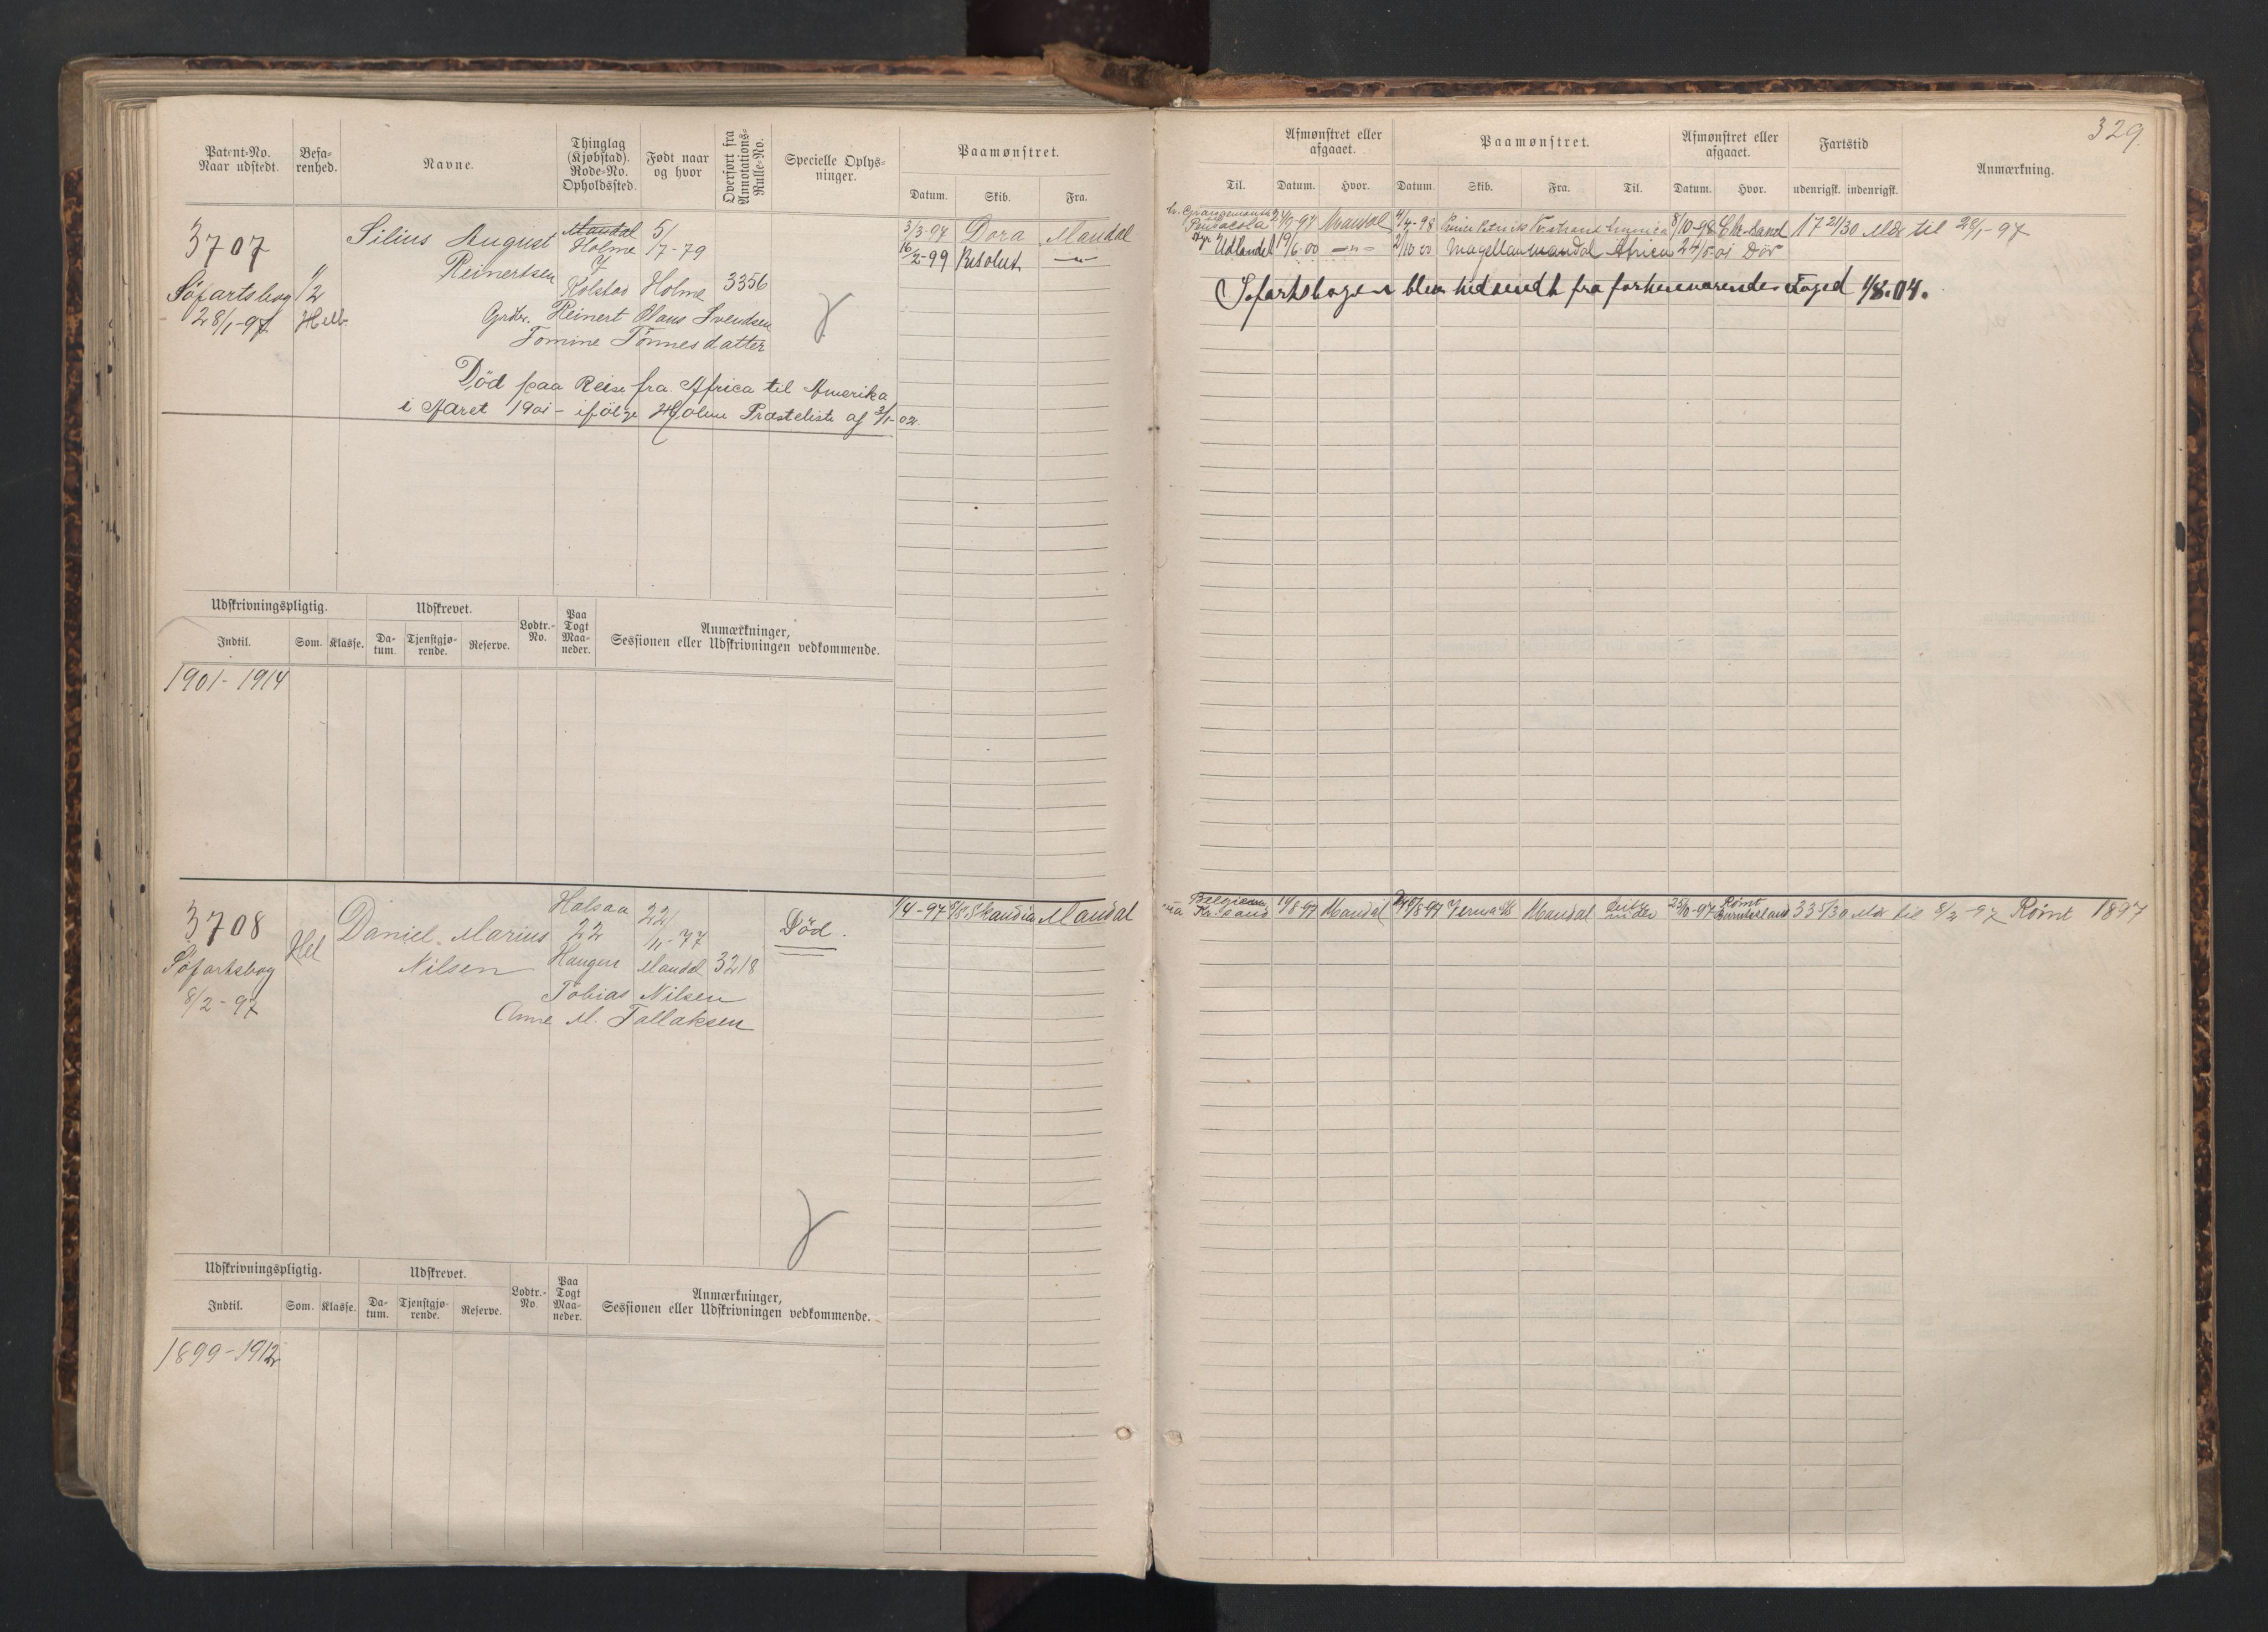 329.
Patent-No. Naar udstedt.
Befarenhed.
Navne.
Thinglag (Kjøbstad). Rode-No. Opholdssted.
Født naar og hvor
Overført fra Annotations-Rulle-No.
Specielle Oplysninger.
Paamønstret.
Datum. Skib. Fra.
Til.
Afmønstret eller afgaaet.
Datum. Hvor.
Paamønstret.
Datum. Skib. Fra. Til.
Afmønstret eller afgaaet.
Datum. Hvor.
Fartstid
udenrigsk. indenrigsk.
Anmærkning.
3707
Søfartsbog
28/1-97
1/2
Helb.
Silius August
Reinertsen
Mandal
Holme
Y
Kolstad
5/
17-79
Holme
3356
Grbr. Reinert Olaus Svendsen
Tomine Tønnesdatter
Død paa Reise fra Africa til Amerika
i Aaret 1901 - ifølge Holme Præsteliste af 2/1-02.
3/3-97 Dora Mandal
16/2-99 Resolut -"-
Pensacola Mandal 8/10-98 17 21/30 Mdr til 28/1-97
Udlandet 19/6 00 -"- 2/10 00 Magellan Mandal Africa 24/5-01 Død
Søfartsbogen blev indsendt fra forhenværende Foged 1/8.04.
Udskrivningspligtig.
Indtil. Som. Klasse.
Udskrevet.
Datum. Tjenstgjørende. Reserve.
Lodtr.-No.
Paa Togt Maaneder.
Anmærkninger,
Sessionen eller Udskrivningen vedkommende.
1901-1914
3708
Søfartsbog
8/2-97
Hel
Daniel Marius
Nilsen
Halsaa
22
Haugen
22/
11-77
Mandal
3218
Tobias Nilsen
Anne M. Tallaksen
Død.
1/4-97 Skandia Mandal
Belgien 19/8-97 Mandal Mandal 25/10-97 Rømt Sunderland 33 5/30 Mdr til 8/2-97 Rømt 1897
Udskrivningspligtig.
Indtil. Som. Klasse.
Udskrevet.
Datum. Tjenstgjørende. Reserve.
Lodtr.-No.
Paa Togt Maaneder.
Anmærkninger,
Sessionen eller Udskrivningen vedkommende.
1899-1912